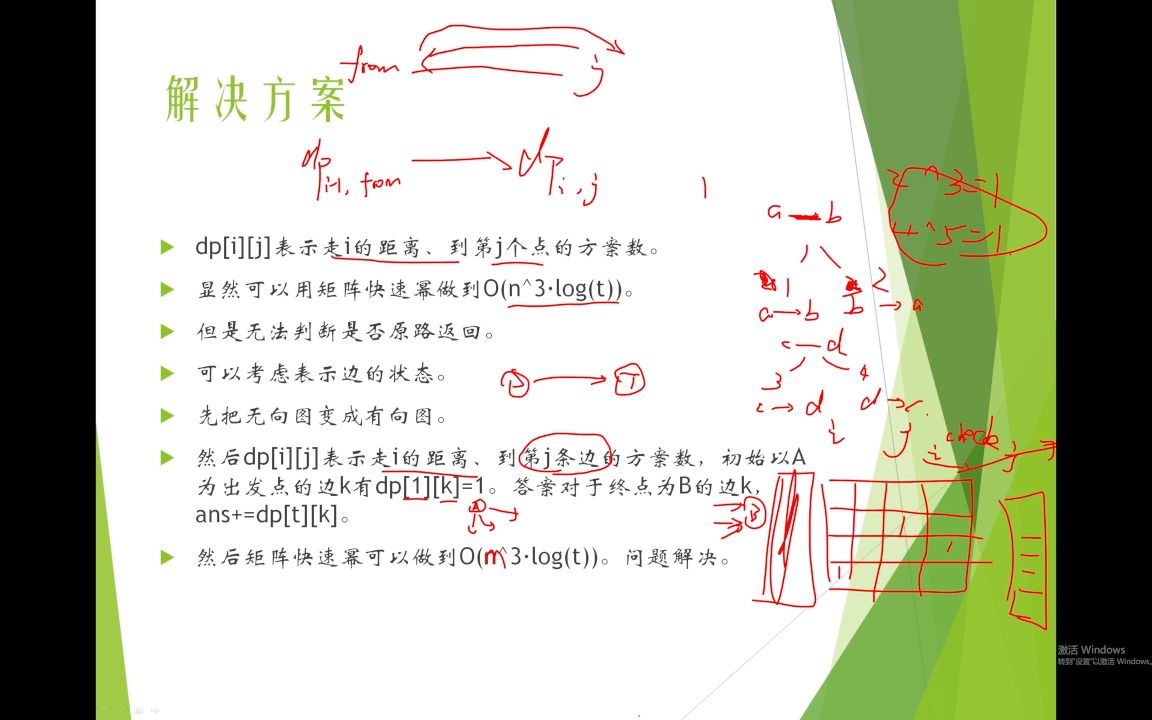 from j
解决方案
dp i-1, from dp i, j
1
a b
2^3=1
4^5=1
dp[i][j]表示走i的距离、到第j个点的方案数。
显然可以用矩阵快速幂做到O(n^3·log(t))。
1 2
a→b b→a
但是无法判断是否原路返回。
c—d
可以考虑表示边的状态。
3 4
先把无向图变成有向图。
c→d d→c
i j
然后dp[i][j]表示走i的距离、到第j条边的方案数，初始以A
为出发点的边k有dp[1][k]=1。答案对于终点为B的边k，
ans+=dp[t][k]。
i j
B
1
1
1
然后矩阵快速幂可以做到O(m^3·log(t))。问题解决。
激活 Windows
转到"设置"以激活 Windows。